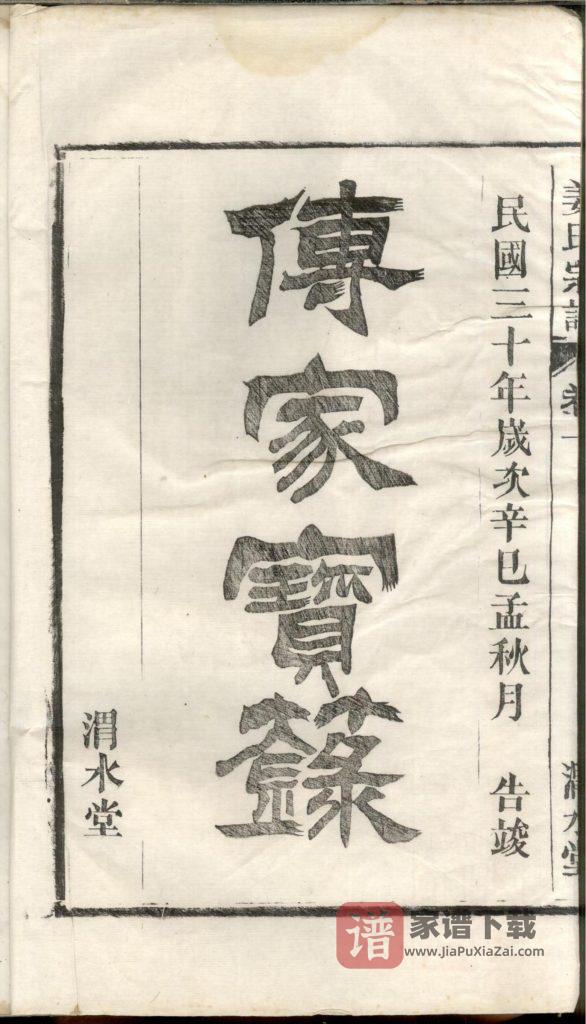 姜氏宗譜
卷一
渭水堂
民國三十年歲次辛巳孟秋月 告竣
傳家寶籙
渭水堂
谱
家谱下载
www.JiaPuXiaZai.com